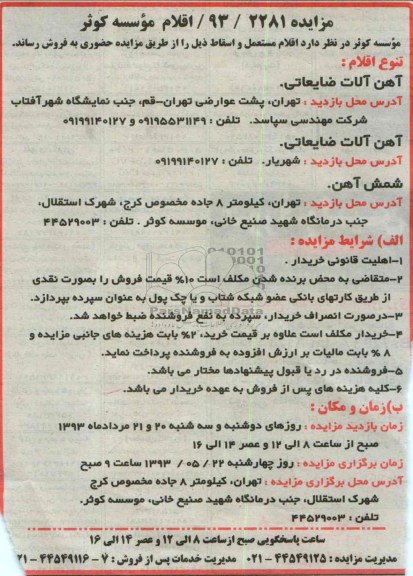 مزایده ۲۲۸۱ / ۹۳/ اقلام مؤسسه کوثر
مؤسسه کوثر در نظر دارد اقلام مستعمل و اسقاط ذیل را از طریق مزایده حضوری به فروش رساند.
تنوع اقلام :
آهن آلات ضایعاتی.
آدرس محل بازدید : تهران، پشت عوارضی تهران-قم، جنب نمایشگاه شهرآفتاب
شرکت مهندسی سپاسد. تلفن : ۰۹۱۹۵۵۳۱۱۴۹ و ۰۹۱۹۹۱۴۰۱۲۷
آهن آلات ضایعاتی.
آدرس محل بازدید : شهریار. تلفن : ۰۹۱۹۹۱۴۰۱۲۷
شمش آهن.
آدرس محل بازدید : تهران، کیلومتر ۸ جاده مخصوص کرج، شهرک استقلال،
جنب درمانگاه شهید صنیع خانی، موسسه کوثر . تلفن : ۴۴۵۲۹۰۰۳
الف) شرایط مزایده :
۱-اهلیت قانونی خریدار .
۲-متقاضی به محض برنده شدن مکلف است ۱۰% قیمت فروش را بصورت نقدی
از طریق کارتهای بانکی عضو شبکه شتاب و یا چک پول به عنوان سپرده بپردازد.
۳-درصورت انصراف خریدار، سپرده به نفع فروشنده ضبط خواهد شد.
ParsNamadData
۴-خریدار مکلف است علاوه بر قیمت خرید، ۲% بابت هزینه های جانبی مزایده و
۸ % بابت مالیات بر ارزش افزوده به فروشنده پرداخت نماید.
۵-فروشنده در رد یا قبول پیشنهادها مختار می باشد.
۶-کلیه هزینه های پس از فروش به عهده خریدار می باشد.
ب)زمان و مکان :
زمان بازدید مزایده : روزهای دوشنبه و سه شنبه ۲۰ و ۲۱ مردادماه ۱۳۹۳
صبح از ساعت ۸ الی ۱۲ و عصر ۱۴ الی ۱۶
زمان برگزاری مزایده : روز چهارشنبه ۲۲ / ۰۵ / ۱۳۹۳ ساعت ۹ صبح
آدرس محل برگزاری مزایده : تهران، کیلومتر ۸ جاده مخصوص کرج
شهرک استقلال، جنب درمانگاه شهید صنیع خانی، موسسه کوثر.
تلفن : ۴۴۵۲۹۰۰۳
ساعت پاسخگویی صبح ازساعت ۸ الی ۱۲ و عصر ۱۴ الی ۱۶
مدیریت مزایده : ۴۴۵۴۹۱۲۵ - ۰۲۱ مدیریت خدمات پس از فروش : ۷ - ۴۴۵۴۹۱۱۶ - ۰۲۱